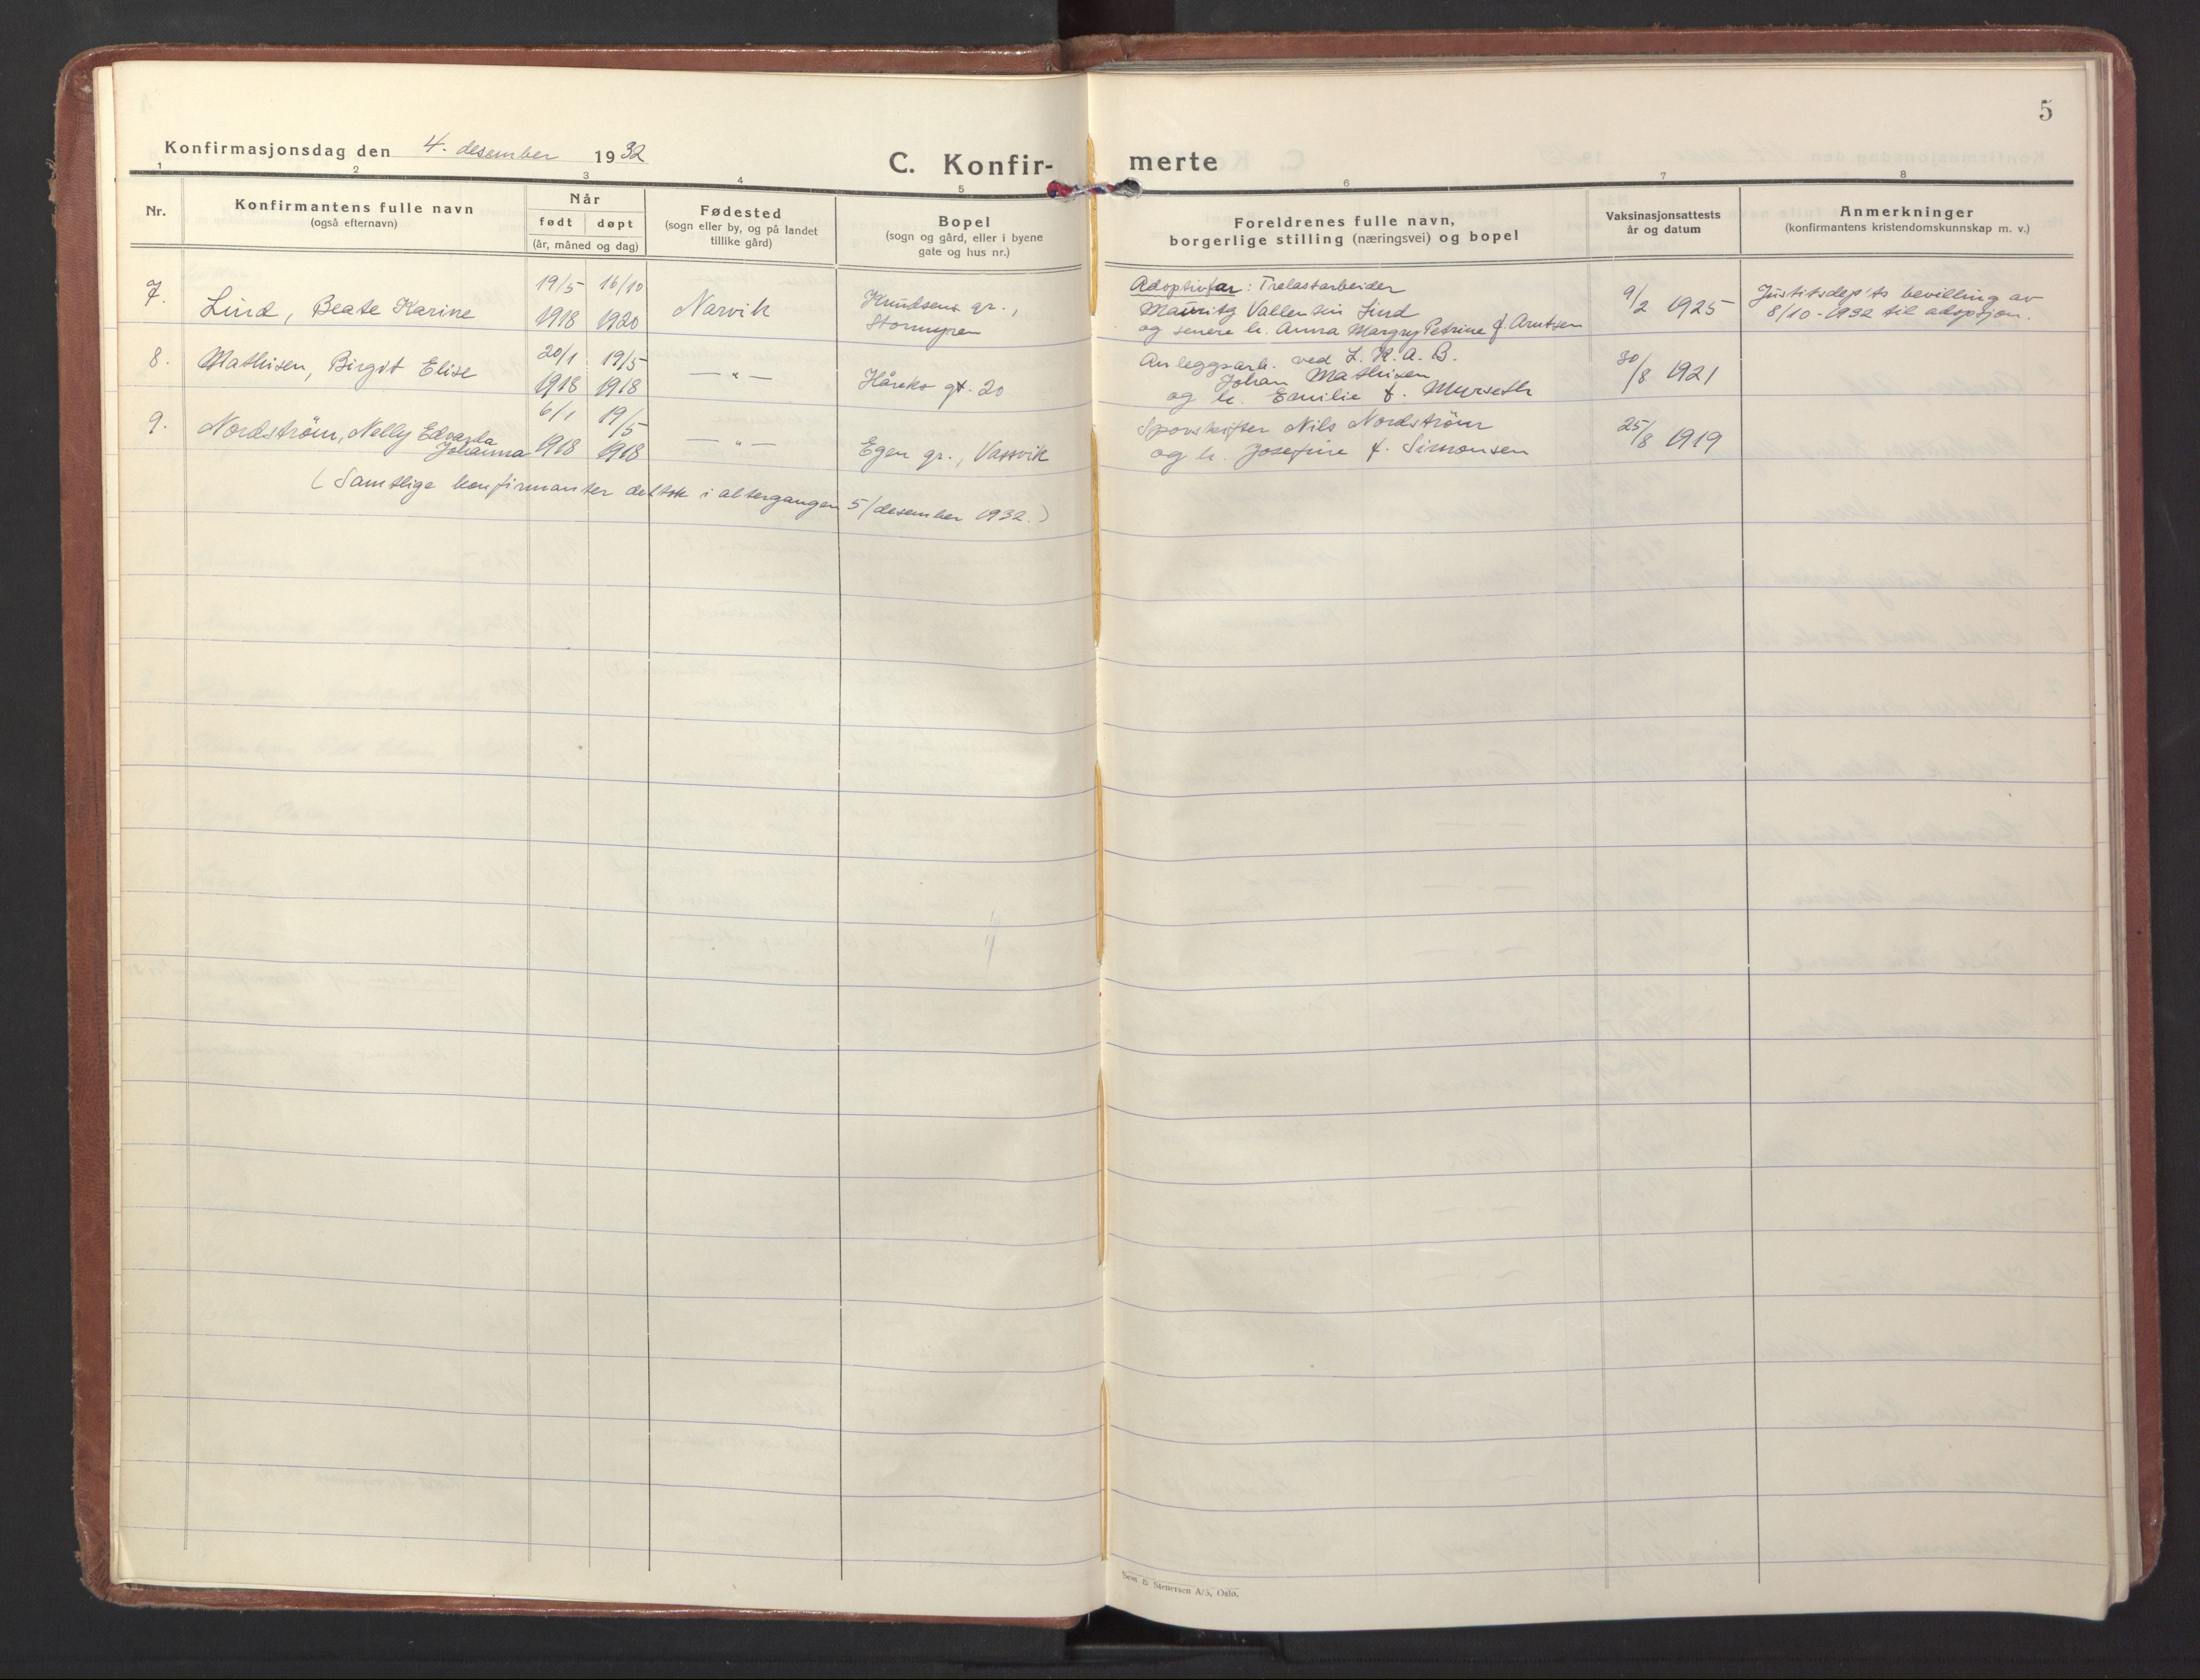 5
Konfirmasjonsdag den 4. desember 1932
C. Konfir- merte
1 2 3 4 5 6 7 8
Nr.
Konfirmantens fulle navn
(også efternavn)
Når
født døpt
(år, måned og dag)
Fødested
(sogn eller by, og på landet
tillike gård)
Bopel
(sogn og gård, eller i byene
gate og hus nr.)
Foreldrenes fulle navn,
borgerlige stilling (næringsvei) og bopel
Vaksinasjonsattests
år og datum
Anmerkninger
(konfirmantens kristendomskunnskap m. v.)
7. Lind, Beate Karine
19/5 1918
16/10 1920
Narvik
Knudsens gr.,
Stormyren
Adoptivfar: Trelastarbeider
Mauritz Vallentin Lind
og senere h. Anna Margry Petrine f. Arntsen
9/2 1925
Justitsdep'ts bevilling av
8/10-1932 til adopsjon.
8. Mathisen, Birgit Elise
20/1 1918
19/5 1918
— " —
Håreks gt. 20
Anleggsarb. ved L.K.A.B.
Johan Mathisen
og h. Emilie f. Myrseth
30/8 1921
9. Nordstrøm, Nelly Edvarda
Johanna
6/1 1918
19/5 1918
— " —
Egen gr., Vassvik
Sporskifter Nils Nordstrøm
og h. Josefine f. Simonsen
25/8 1919
(Samtlige konfirmanter deltok i altergangen 5/desember 1932.)
Sem & Stenersen A/S, Oslo.